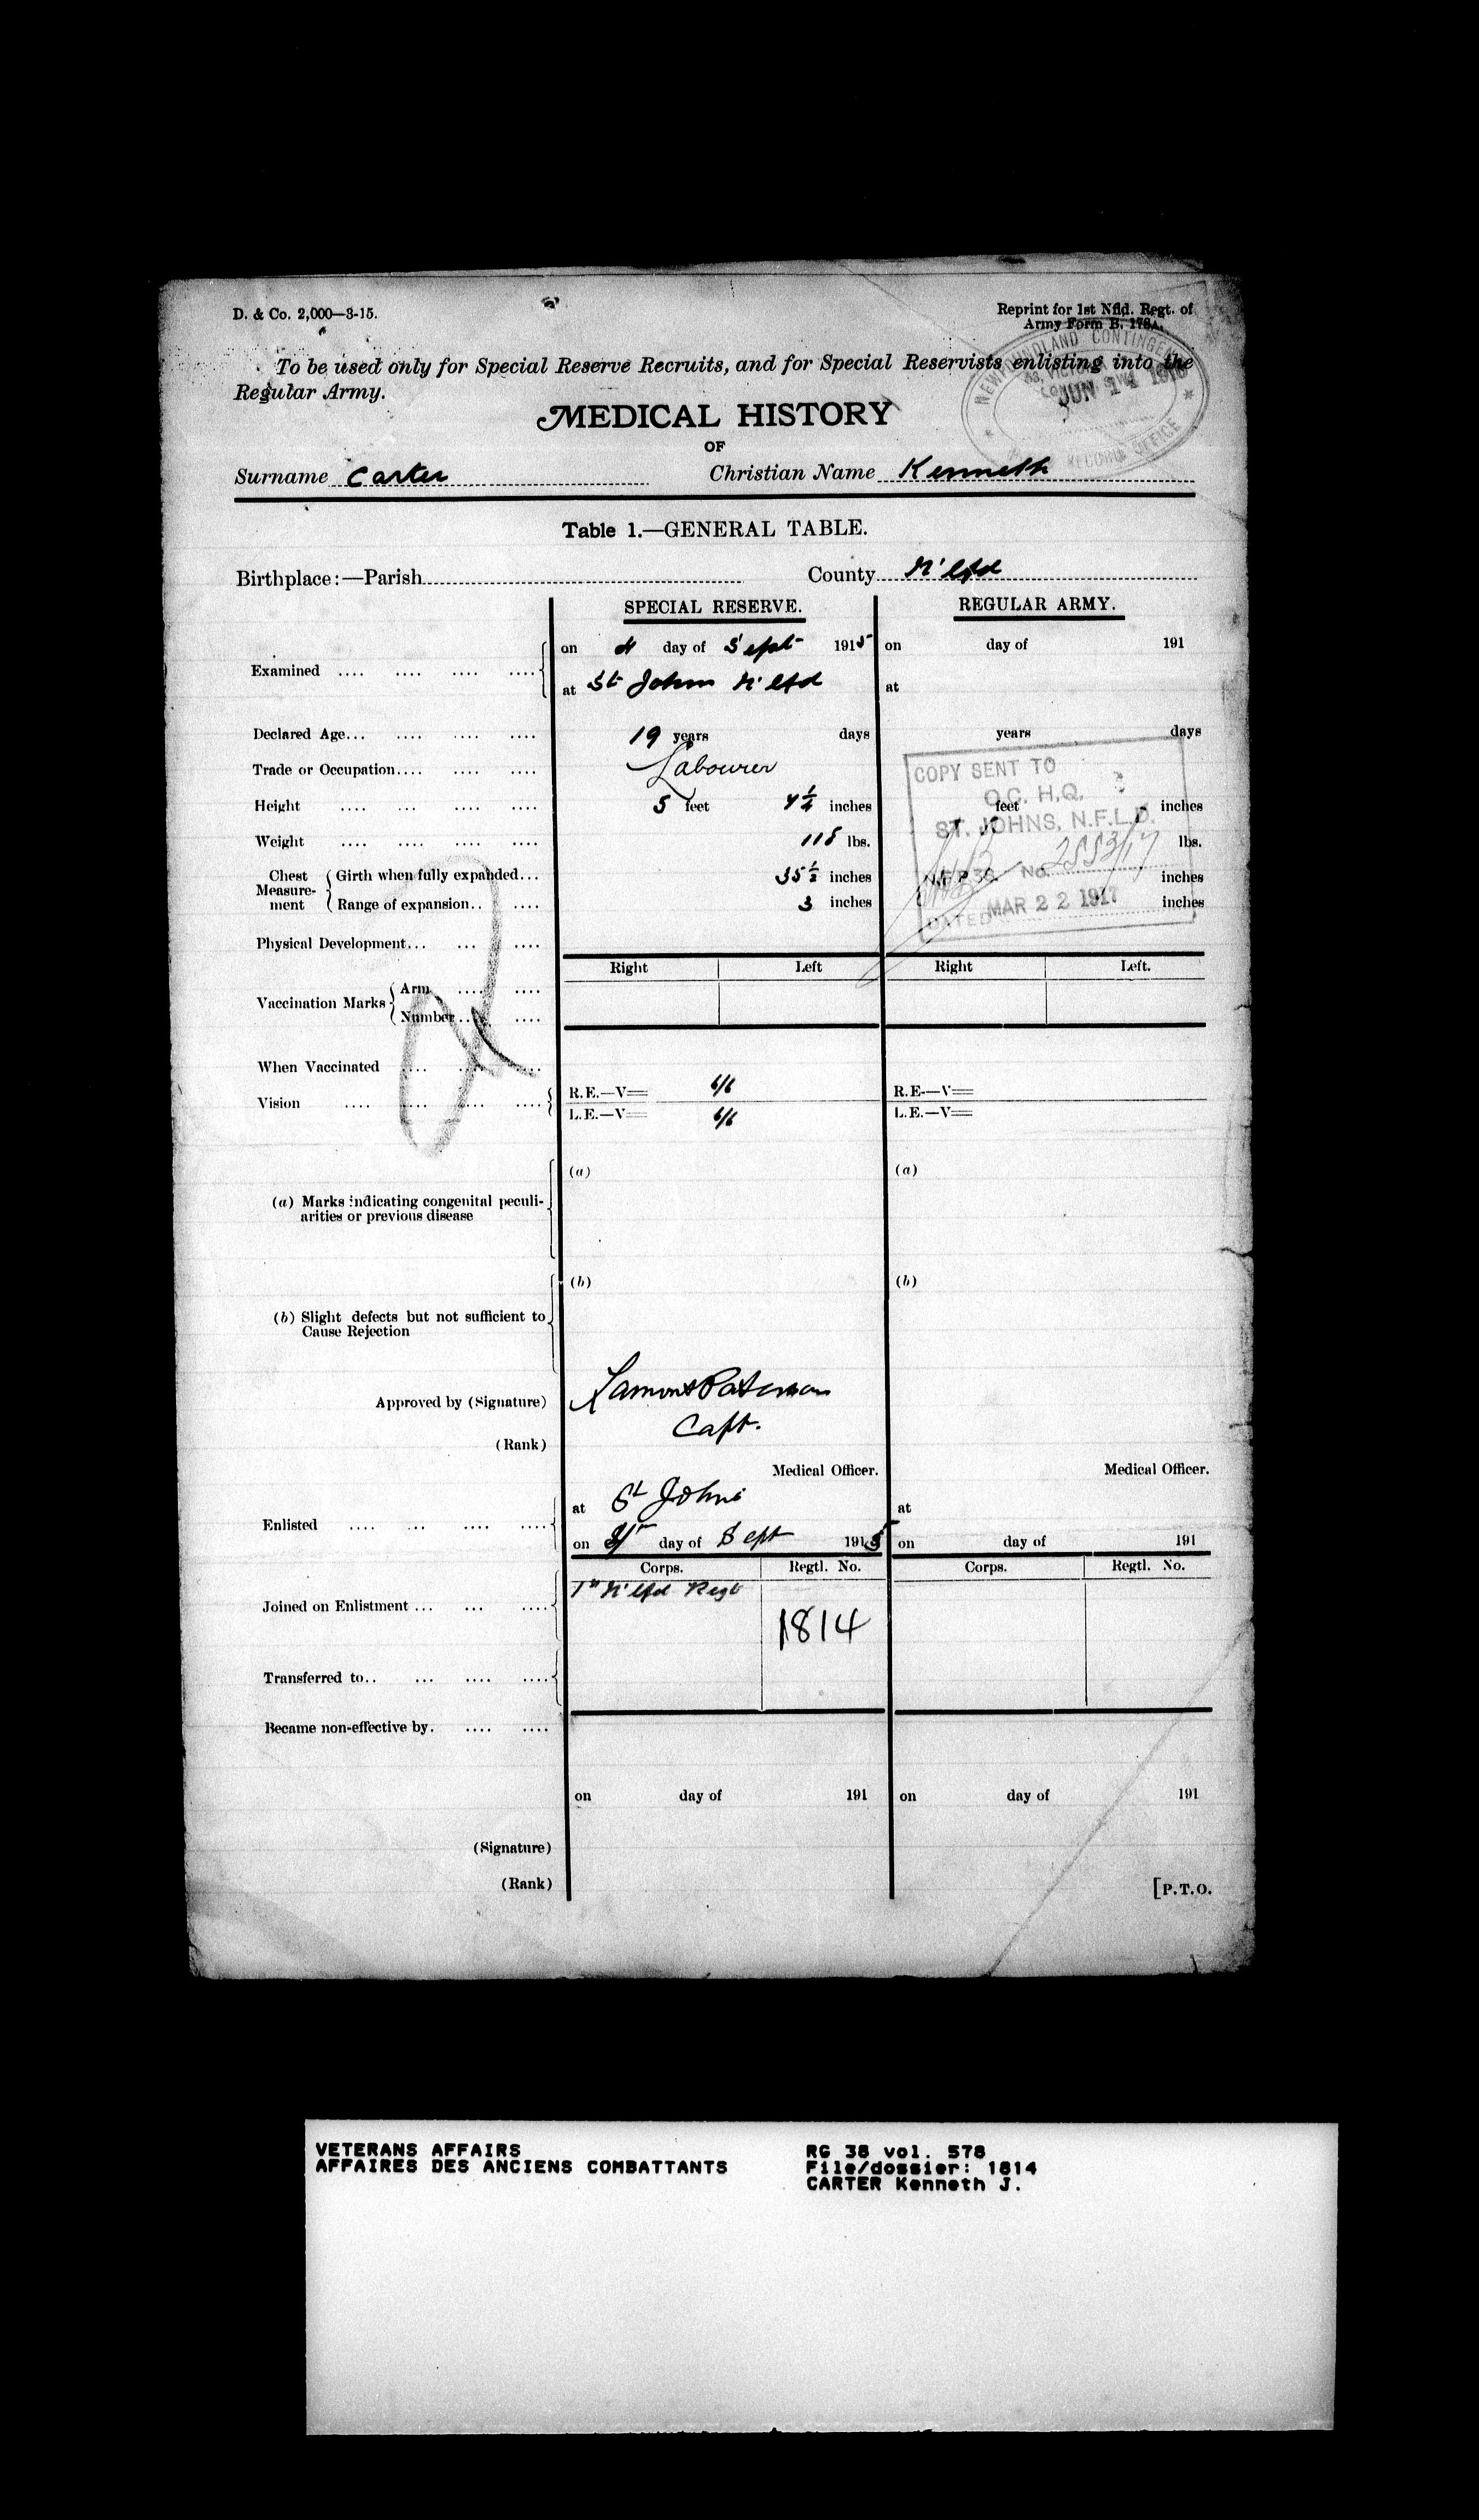 D. & Co. 2,000—3-15.
Reprint for 1st Nfld. Regt. of
Army Form B. 178A.
To be used only for Special Reserve Recruits, and for Special Reservists enlisting into the
Regular Army.
NEWFOUNDLAND CONTINGENT
JUN 14 1916
RECORD OFFICE
MEDICAL HISTORY
OF
Surname Carter Christian Name Kenneth
Table 1.—GENERAL TABLE.
Birthplace:—Parish County N'fld
SPECIAL RESERVE. REGULAR ARMY.
Examined on day of Sept 1915 on day of 191
at St John N'fld at
Declared Age 19 years days years days
Trade or Occupation Labourer
Height 5 feet 4½ inches feet inches
Weight 118 lbs. lbs.
Chest Measurement Girth when fully expanded 35½ inches inches
Range of expansion 3 inches inches
COPY SENT TO
O.C. H.Q.
ST. JOHNS, N.F.L.D.
N.F.P.36. No. 2553/17
DATED MAR 22 1917
Physical Development
Right Left Right Left.
Vaccination Marks Arm
Number
When Vaccinated
Vision R.E.—V= 6/6 R.E—V=
L.E.—V= 6/6 L.E.—V=
(a) (a)
(a) Marks indicating congenital peculi-
arities or previous disease
(b) (b)
(b) Slight defects but not sufficient to
Cause Rejection
Approved by (Signature) Lamont Paterson
(Rank) Capt.
Medical Officer. Medical Officer.
Enlisted at St Johns at
on day of Sept 1915 on day of 191
Corps. Regtl. No. Corps. Regtl. No.
Joined on Enlistment 1st N'fld Regt 1814
Transferred to
Became non-effective by
on day of 191 on day of 191
(Signature)
(Rank)
[P.T.O.
VETERANS AFFAIRS RG 38 vol. 578
AFFAIRES DES ANCIENS COMBATTANTS File/dossier: 1814
CARTER Kenneth J.